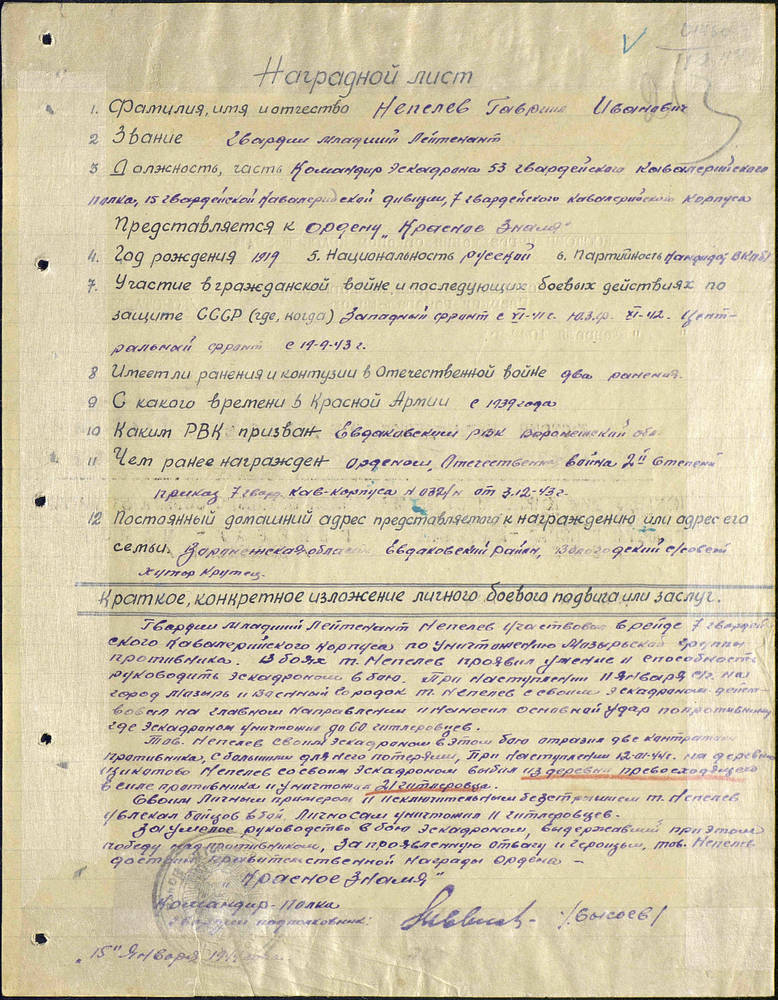 Наградной лист
1. Фамилия, имя и отчество Непелев Гаврил Иванович
2 Звание Гвардии младший Лейтенант
3 Должность, часть Командир Эскадрона 53 гвардейского Кавалерийского
полка, 15 гвардейской Кавалерийской дивизии, 7 гвардейского Кавалерийского Корпуса
Представляется к ордену „Красное Знамя"
4. Год рождения 1919 5. Национальность русский 6. Партийность Кандидат ВКП(б)
7. Участие в гражданской войне и последующих боевых действиях по
защите СССР (где, когда) Западный фронт с VI-41г. Ю.З.Ф. XI-42. Цент-
ральный фронт с 19-9-43 г.
8 Имеет ли ранения и контузии в Отечественной войне два ранения.
9 С какого времени в Красной Армии с 1939 года
10 Каким РВК призван Евдаковским РВК Воронежской обл
11 Чем ранее награжден орденом, Отечественная война 2й Степени
приказ 7 гвард. Кав-Корпуса N 032/н от 3.12-43 г.
12 Постоянный домашний адрес представляемого к награждению или адрес его
семьи. Воронежская область Евдаковский район, с/совет
хутор Крутец.
Краткое, конкретное изложение личного боевого подвига или заслуг.
Гвардии младший Лейтенант Непелев участвовал в рейде 7 гвардей
ского Кавалерийского Корпуса по уничтожению Мозырьской группы
противника. В боях т. Непелев проявил умение и способность
руководить Эскадроном в бою. При наступлении 11 января на
город Мозырь и Военный Городок т. Непелев с своим Эскадроном дейст-
вовал на главном направлении и наносил основной удар по противнику
где Эскадроном уничтожил до 60 гитлеровцев.
Тов. Непелев своим Эскадроном в этом бою отразил две контратаки
противника, с большими для него потерями, При наступлении 12-01-44г. на деревню
Непелев со своим Эскадроном выбил из деревни превосходящего
в силе противника и уничтожил 21 гитлеровца.
Своим Личным примером и исключительным бесстрашием т. Непелев
увлекал бойцов в бой. Лично сам уничтожил 11 гитлеровцев.
За умелое руководство в бою Эскадроном, выдержавший при этом
победу над противником, За проявленную отвагу и героизм, тов. Непелев
достоин правительственной Награды ордена —
„Красное Знамя"
Командир-Полка
Гвардии подполковник: /Высоев/
„15" Января 1944